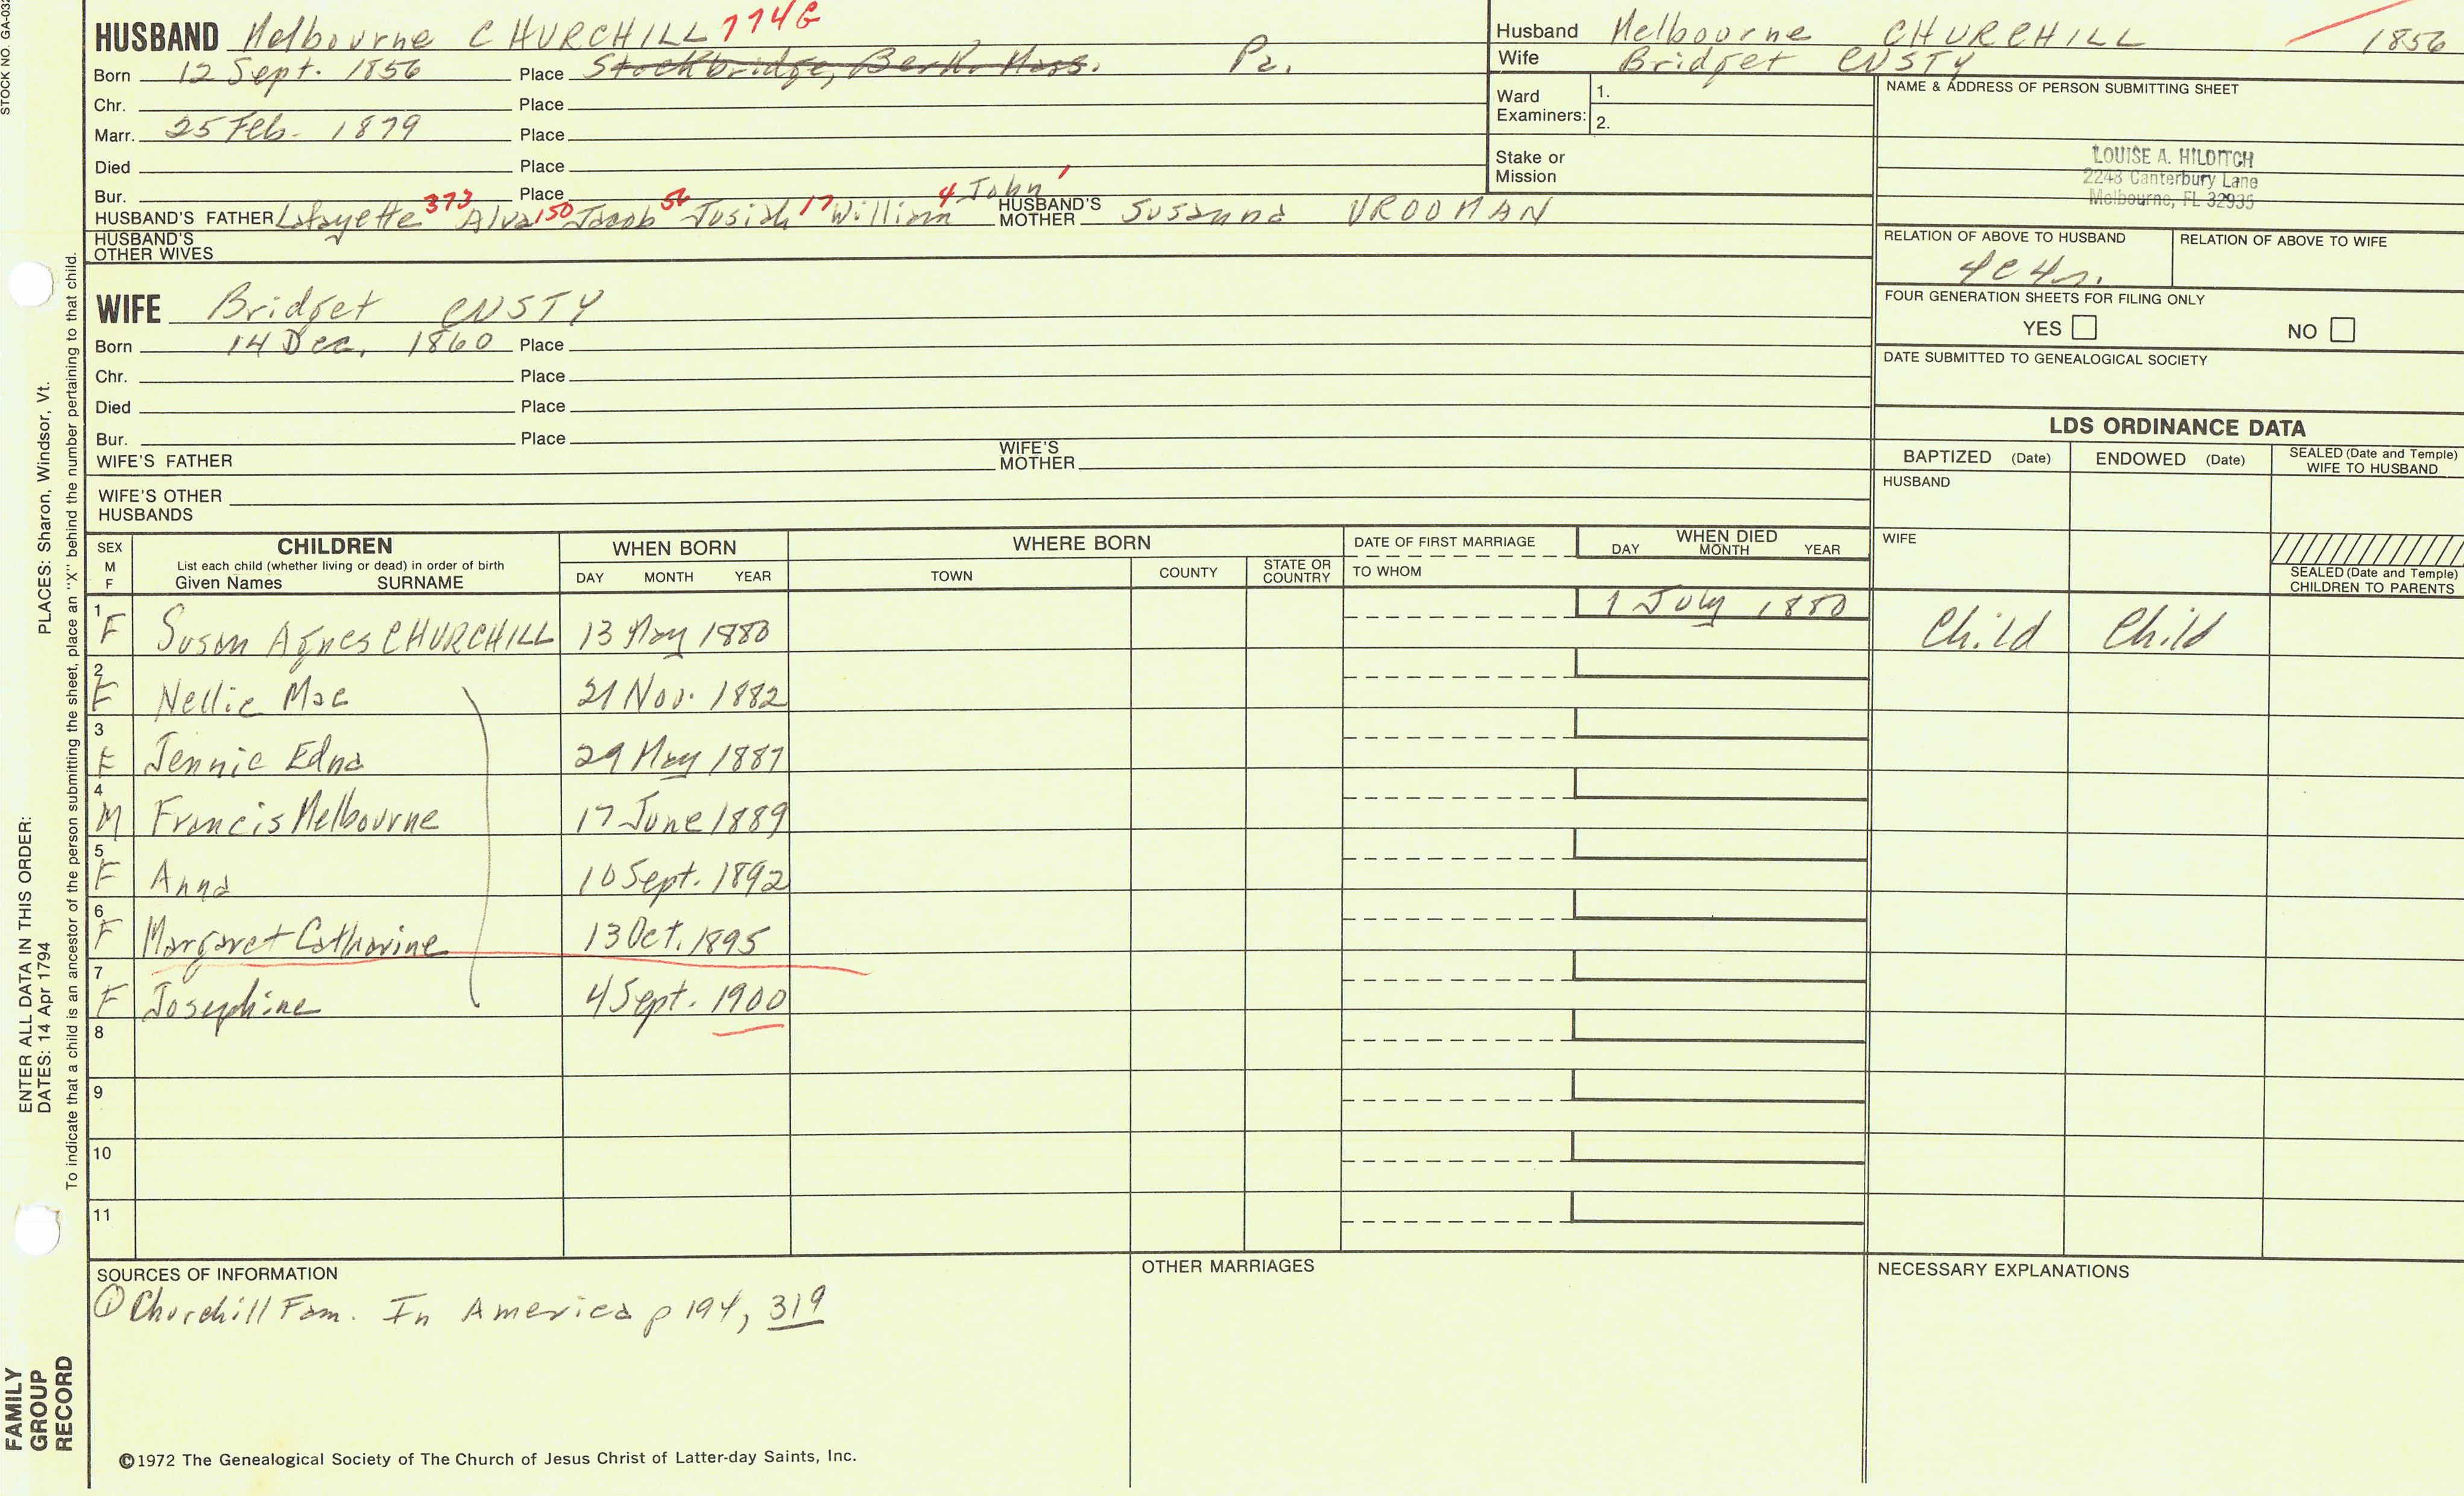 STOCK NO. GA-032
HUSBAND Melbourne CHURCHILL 774G
Born 12 Sept. 1856 Place Stockbridge, Berk. Mass. Pa.
Chr. Place
Marr. 25 Feb. 1879 Place
Died Place
Bur. Place
HUSBAND'S FATHER Lafayette 373 Alva 150 Jacob 56 Josiah 17 William 4 John 1 HUSBAND'S MOTHER Susanna VROOMAN
HUSBAND'S OTHER WIVES
Husband Melbourne CHURCHILL 1856
Wife Bridget CUSTY
Ward Examiners: 1.
2.
Stake or Mission
NAME & ADDRESS OF PERSON SUBMITTING SHEET
LOUISE A. HILDITCH
2243 Canterbury Lane
Melbourne, FL 32935
RELATION OF ABOVE TO HUSBAND RELATION OF ABOVE TO WIFE
4c4r.
FOUR GENERATION SHEETS FOR FILING ONLY
YES NO
DATE SUBMITTED TO GENEALOGICAL SOCIETY
WIFE Bridget CUSTY
Born 14 Dec. 1860 Place
Chr. Place
Died Place
Bur. Place
WIFE'S FATHER WIFE'S MOTHER
WIFE'S OTHER HUSBANDS
LDS ORDINANCE DATA
BAPTIZED (Date) ENDOWED (Date) SEALED (Date and Temple) WIFE TO HUSBAND
HUSBAND
WIFE
SEALED (Date and Temple) CHILDREN TO PARENTS
SEX M F
CHILDREN
List each child (whether living or dead) in order of birth
Given Names SURNAME
WHEN BORN
DAY MONTH YEAR
WHERE BORN
TOWN COUNTY STATE OR COUNTRY
DATE OF FIRST MARRIAGE
TO WHOM
WHEN DIED
DAY MONTH YEAR
1 F Susan Agnes CHURCHILL 13 May 1880 1 July 1880 Child Child
2 F Nellie Mae 21 Nov. 1882
3 F Jennie Edna 29 May 1887
4 M Francis Melbourne 17 June 1889
5 F Anna 10 Sept. 1892
6 F Margaret Catharine 13 Oct. 1895
7 F Josephine 4 Sept. 1900
8
9
10
11
SOURCES OF INFORMATION
① Churchill Fam. In America p 194, 319
OTHER MARRIAGES
NECESSARY EXPLANATIONS
©1972 The Genealogical Society of The Church of Jesus Christ of Latter-day Saints, Inc.
FAMILY GROUP RECORD
ENTER ALL DATA IN THIS ORDER:
DATES: 14 Apr 1794
PLACES: Sharon, Windsor, Vt.
To indicate that a child is an ancestor of the person submitting the sheet, place an "X" behind the number pertaining to that child.